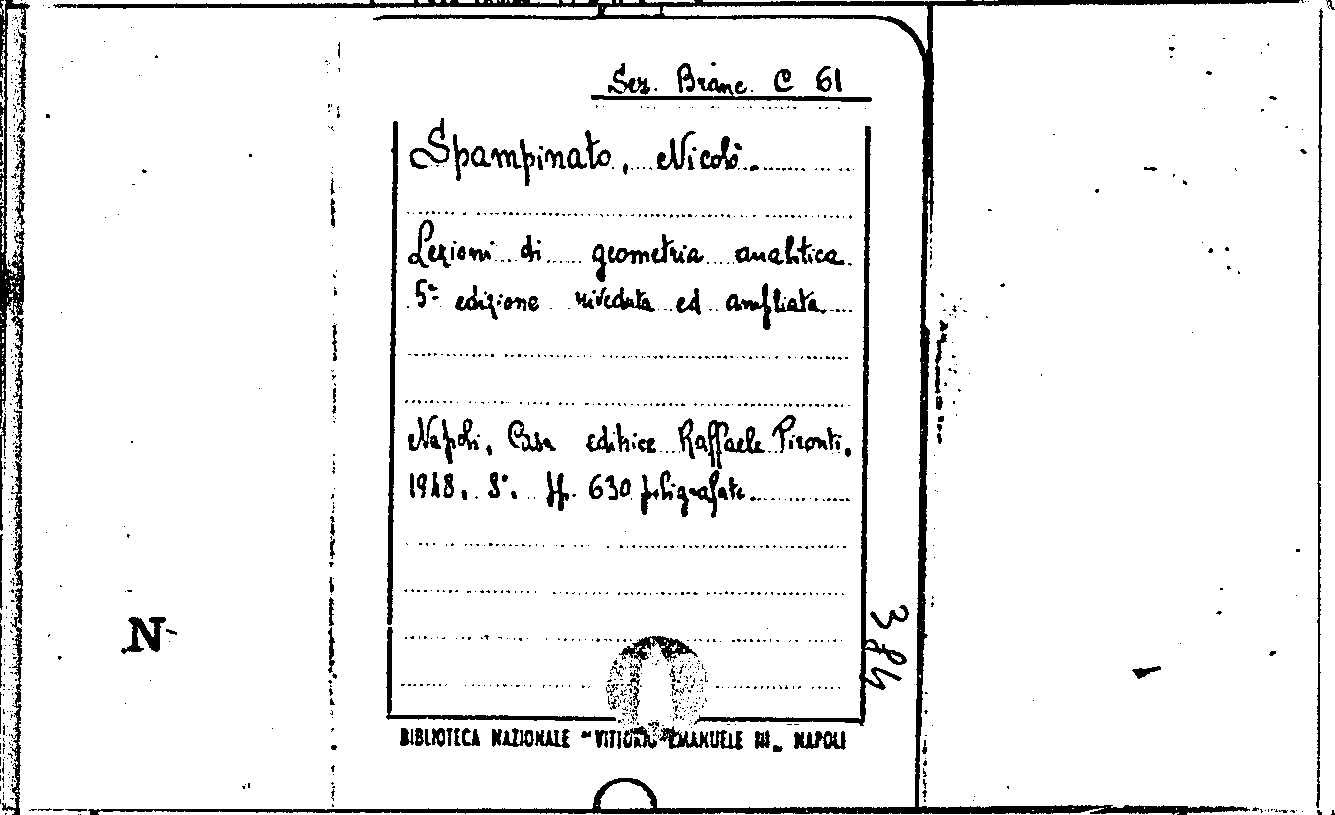 Sez. Branc. C 61
Spampinato, Nicolò.
Lezioni di geometria analitica
5ª edizione riveduta ed ampliata
Napoli, Casa editrice Raffaele Pironti.
1948. 8°. pp. 630 poligrafate.
384
N
BIBLIOTECA NAZIONALE "VITTORIO EMANUELE III" NAPOLI